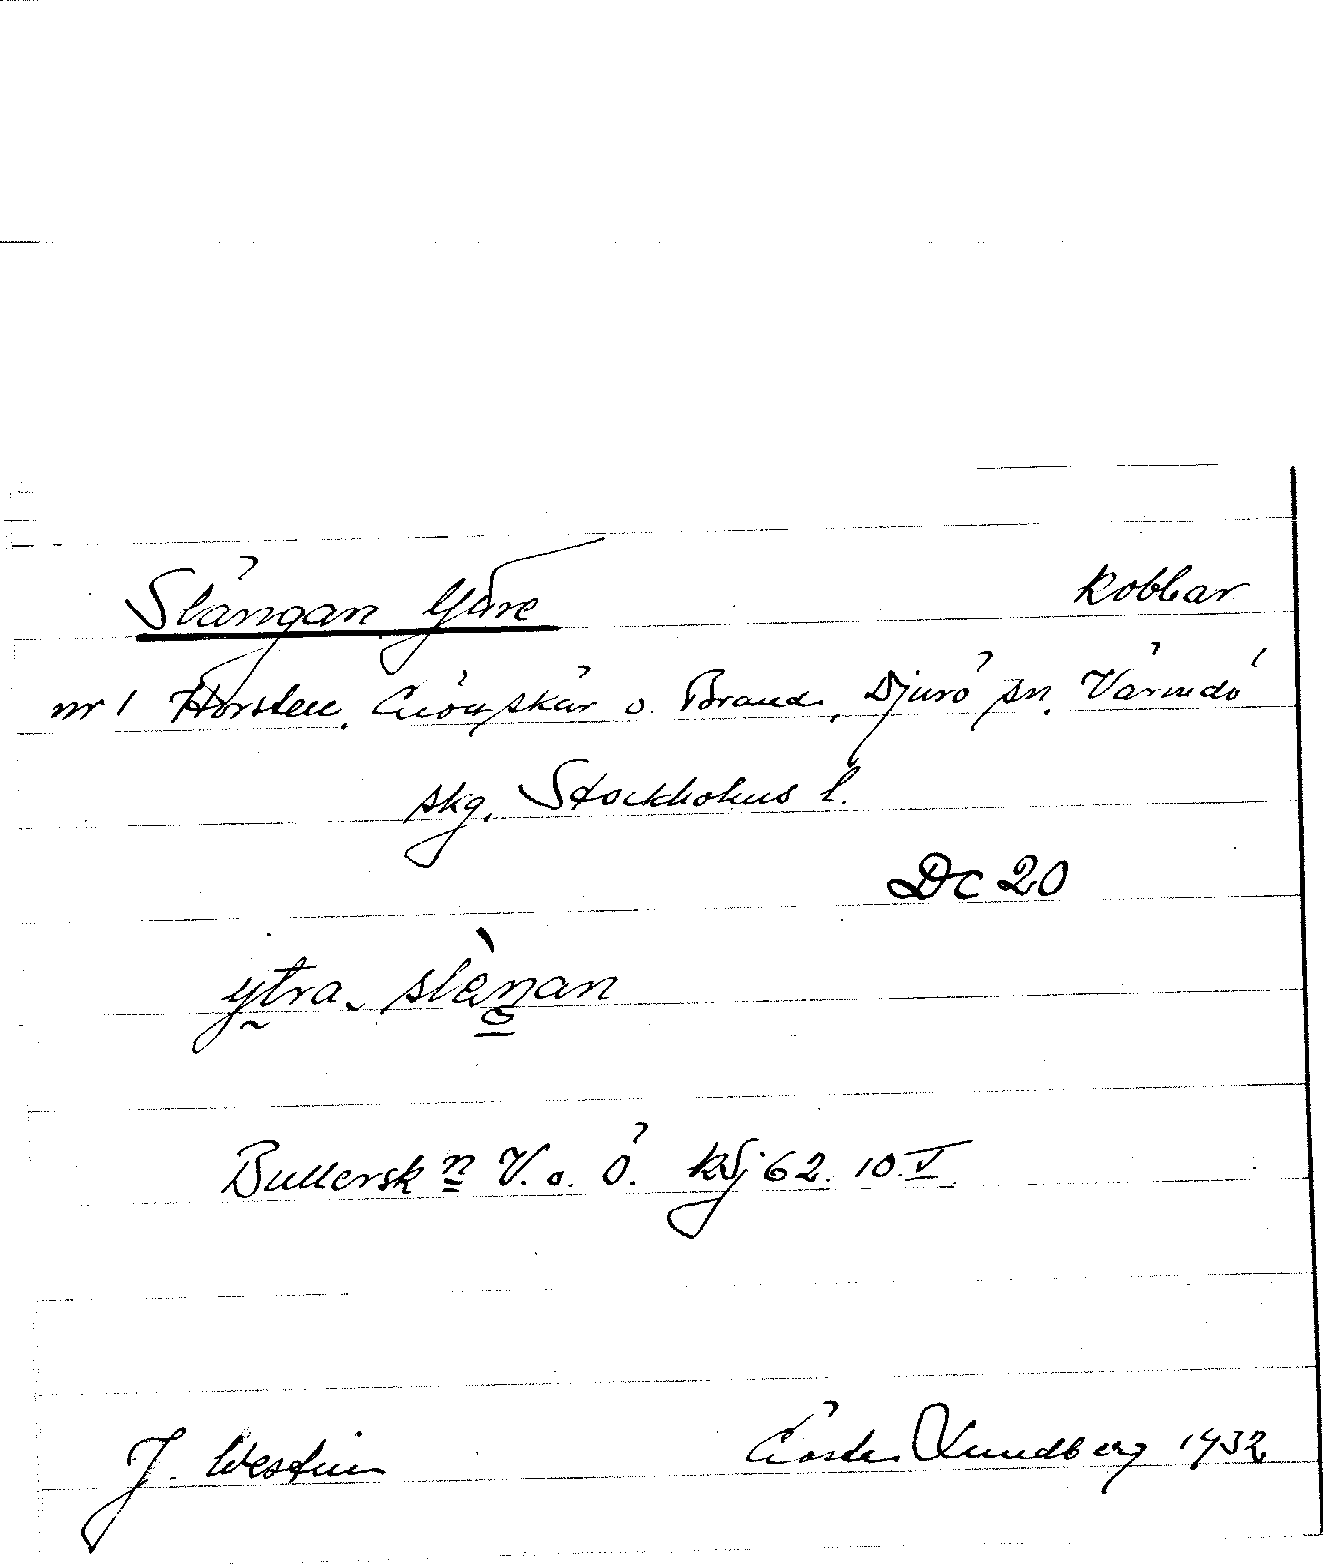 Slängan Yttre kobbar
nr 1 Horsten, Långskär o. Brand, Djurö sn, Värmdö
skg. Stockholms l.
DC 20
ytra slèṉan
Bullersk n V. o. Ö. kbj 62. 10 V
J. Westin Gösta Lundberg 1932